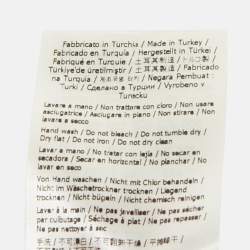 Fabbricato in Turchia / Made in Turkey /
Fabricado en Turquía / Hergestellt in Türkei /
Fabriqué en Turquie / 土耳其制造 / トルコ製
Türkiye'de üretilmiştir / 土耳其製造 / Fabricado
na Turquia / Negara Pembuat :
Turki / Сделано в Турции / Vyrobeno v
Turecku
Lavare a mano / Non trattare con cloro / Non usare
asciugatrice / Asciugare in piano / Non stirare / Non
lavare a secco
Hand wash / Do not bleach / Do not tumble dry /
Dry flat / Do not iron / Do not dry clean
Lavar a mano / No tratar con lejía / No secar en
secadora / Secar en horizontal / No planchar / No
lavar en seco
Von Hand waschen / Nicht mit Chlor behandeln /
Nicht im Wäschetrockner trocknen / Liegend
trocknen / Nicht bügeln / Nicht chemisch reinigen
Laver à la main / Ne pas javelliser / Ne pas sécher
par culbutage / Séchage à plat / Ne pas repasser /
Ne pas nettoyer à sec
手洗 / 不可漂白 /